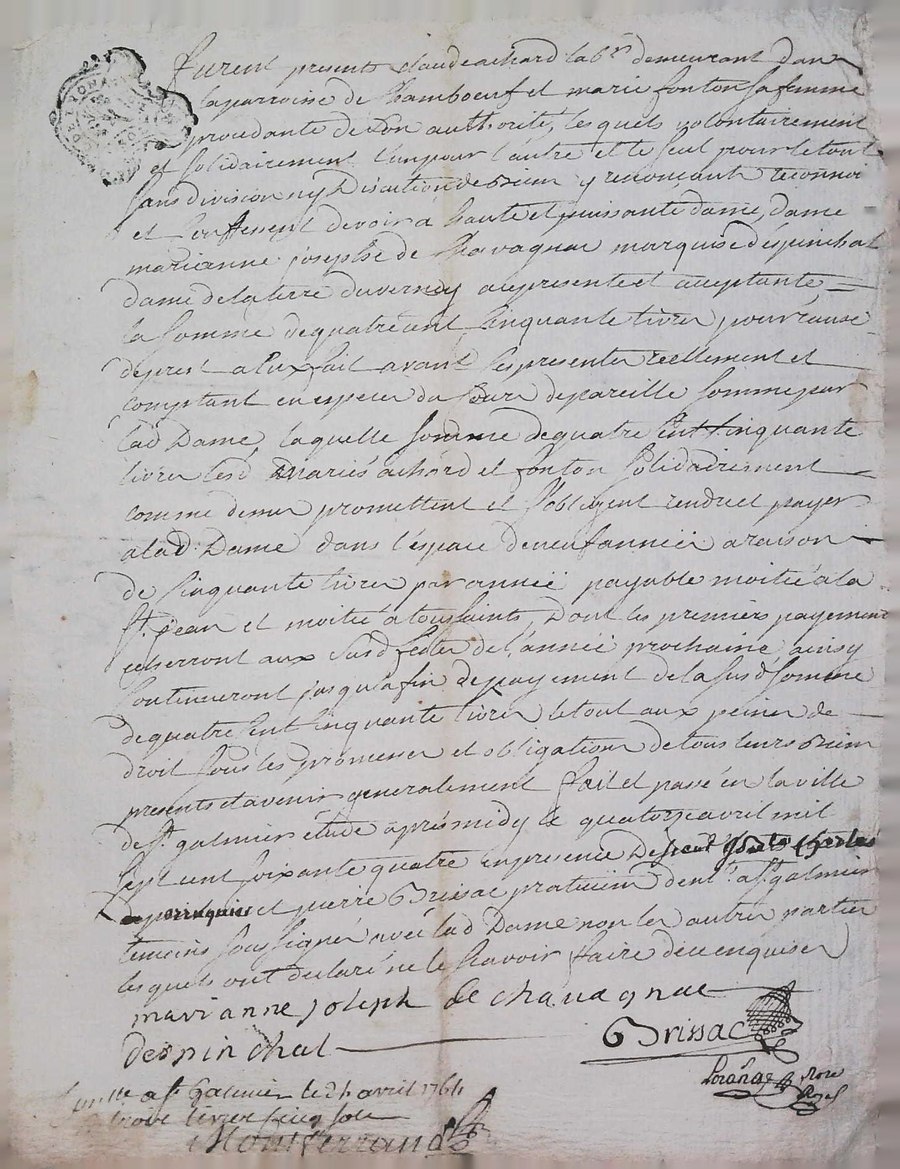 furent presents claude achard lab.r demeurant dans
la parroisse de Chambœuf et marie fonton sa femme
procedante de son authorité, les quels volontairement
et solidairement l'un pour l'autre et le seul pour le tout
sans division ny discution de biens y renonçant reconnoi
et Confessent devoir à haute et puissante dame, dame
marianne josephe de Chavagnac marquise despinchal
dame de la terre du verney au presente et acceptante
la somme de quatre cent Cinquante livres, pour cause
de prest a eux fait avant Ces presentes reellement et
comptant en especes du Cours de pareille somme par
lad Dame, la quelle somme de quatre Cent Cinquante
livres lesd mariés achard et fonton solidairement
comme dessus promettent et s'obligent rendre et payer
a lad Dame dans l'espace de neuf années a raison
de Cinquante livres par année payable moitié a la
St. jean et moitié a toussaints, Dont les premiers payement
echerront aux susd festes de l'année prochaine, ainsy
Continueront jusqu'a fin de payement de la susd somme
de quatre Cent Cinquante livres le tout aux peines de
droit sous les promesses et obligations de tous leurs biens
presents et avenir generalement fait et passé en la ville
de St. galmier etude après midy le quatorze avril mil
Sept cent soixante quatre en presence De Charles
et pierre Brissac praticien dem.t a St galmier
temoins soussignés avec lad Dame non les autres parties
les quels ont declaré ne le scavoir faire de ce enquises
marianne joseph de chavagnac
despinchal
Brissac
not
Royal
a St Galmier le 24 avril 1764
trois livres cinq sols
Montferrand